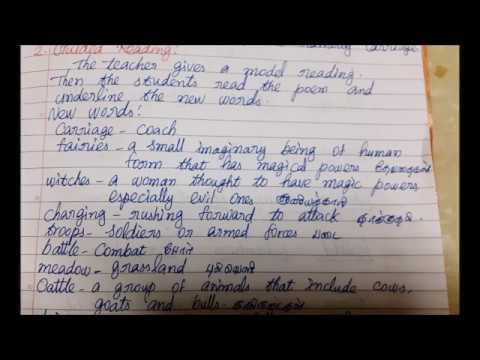 2. Guided Reading:
The teacher gives a model reading.
Then the students read the poem and
underline the new words.
New words:
Carriage - Coach
Fairies - a small imaginary being of human
form that has magical powers
witches - a woman thought to have magic powers
especially evil ones
charging - rushing forward to attack
troops - soldiers or armed forces படை
battle - Combat போர்
meadow - grassland புல்வெளி
Cattle - a group of animals that include cows,
goats and bulls-